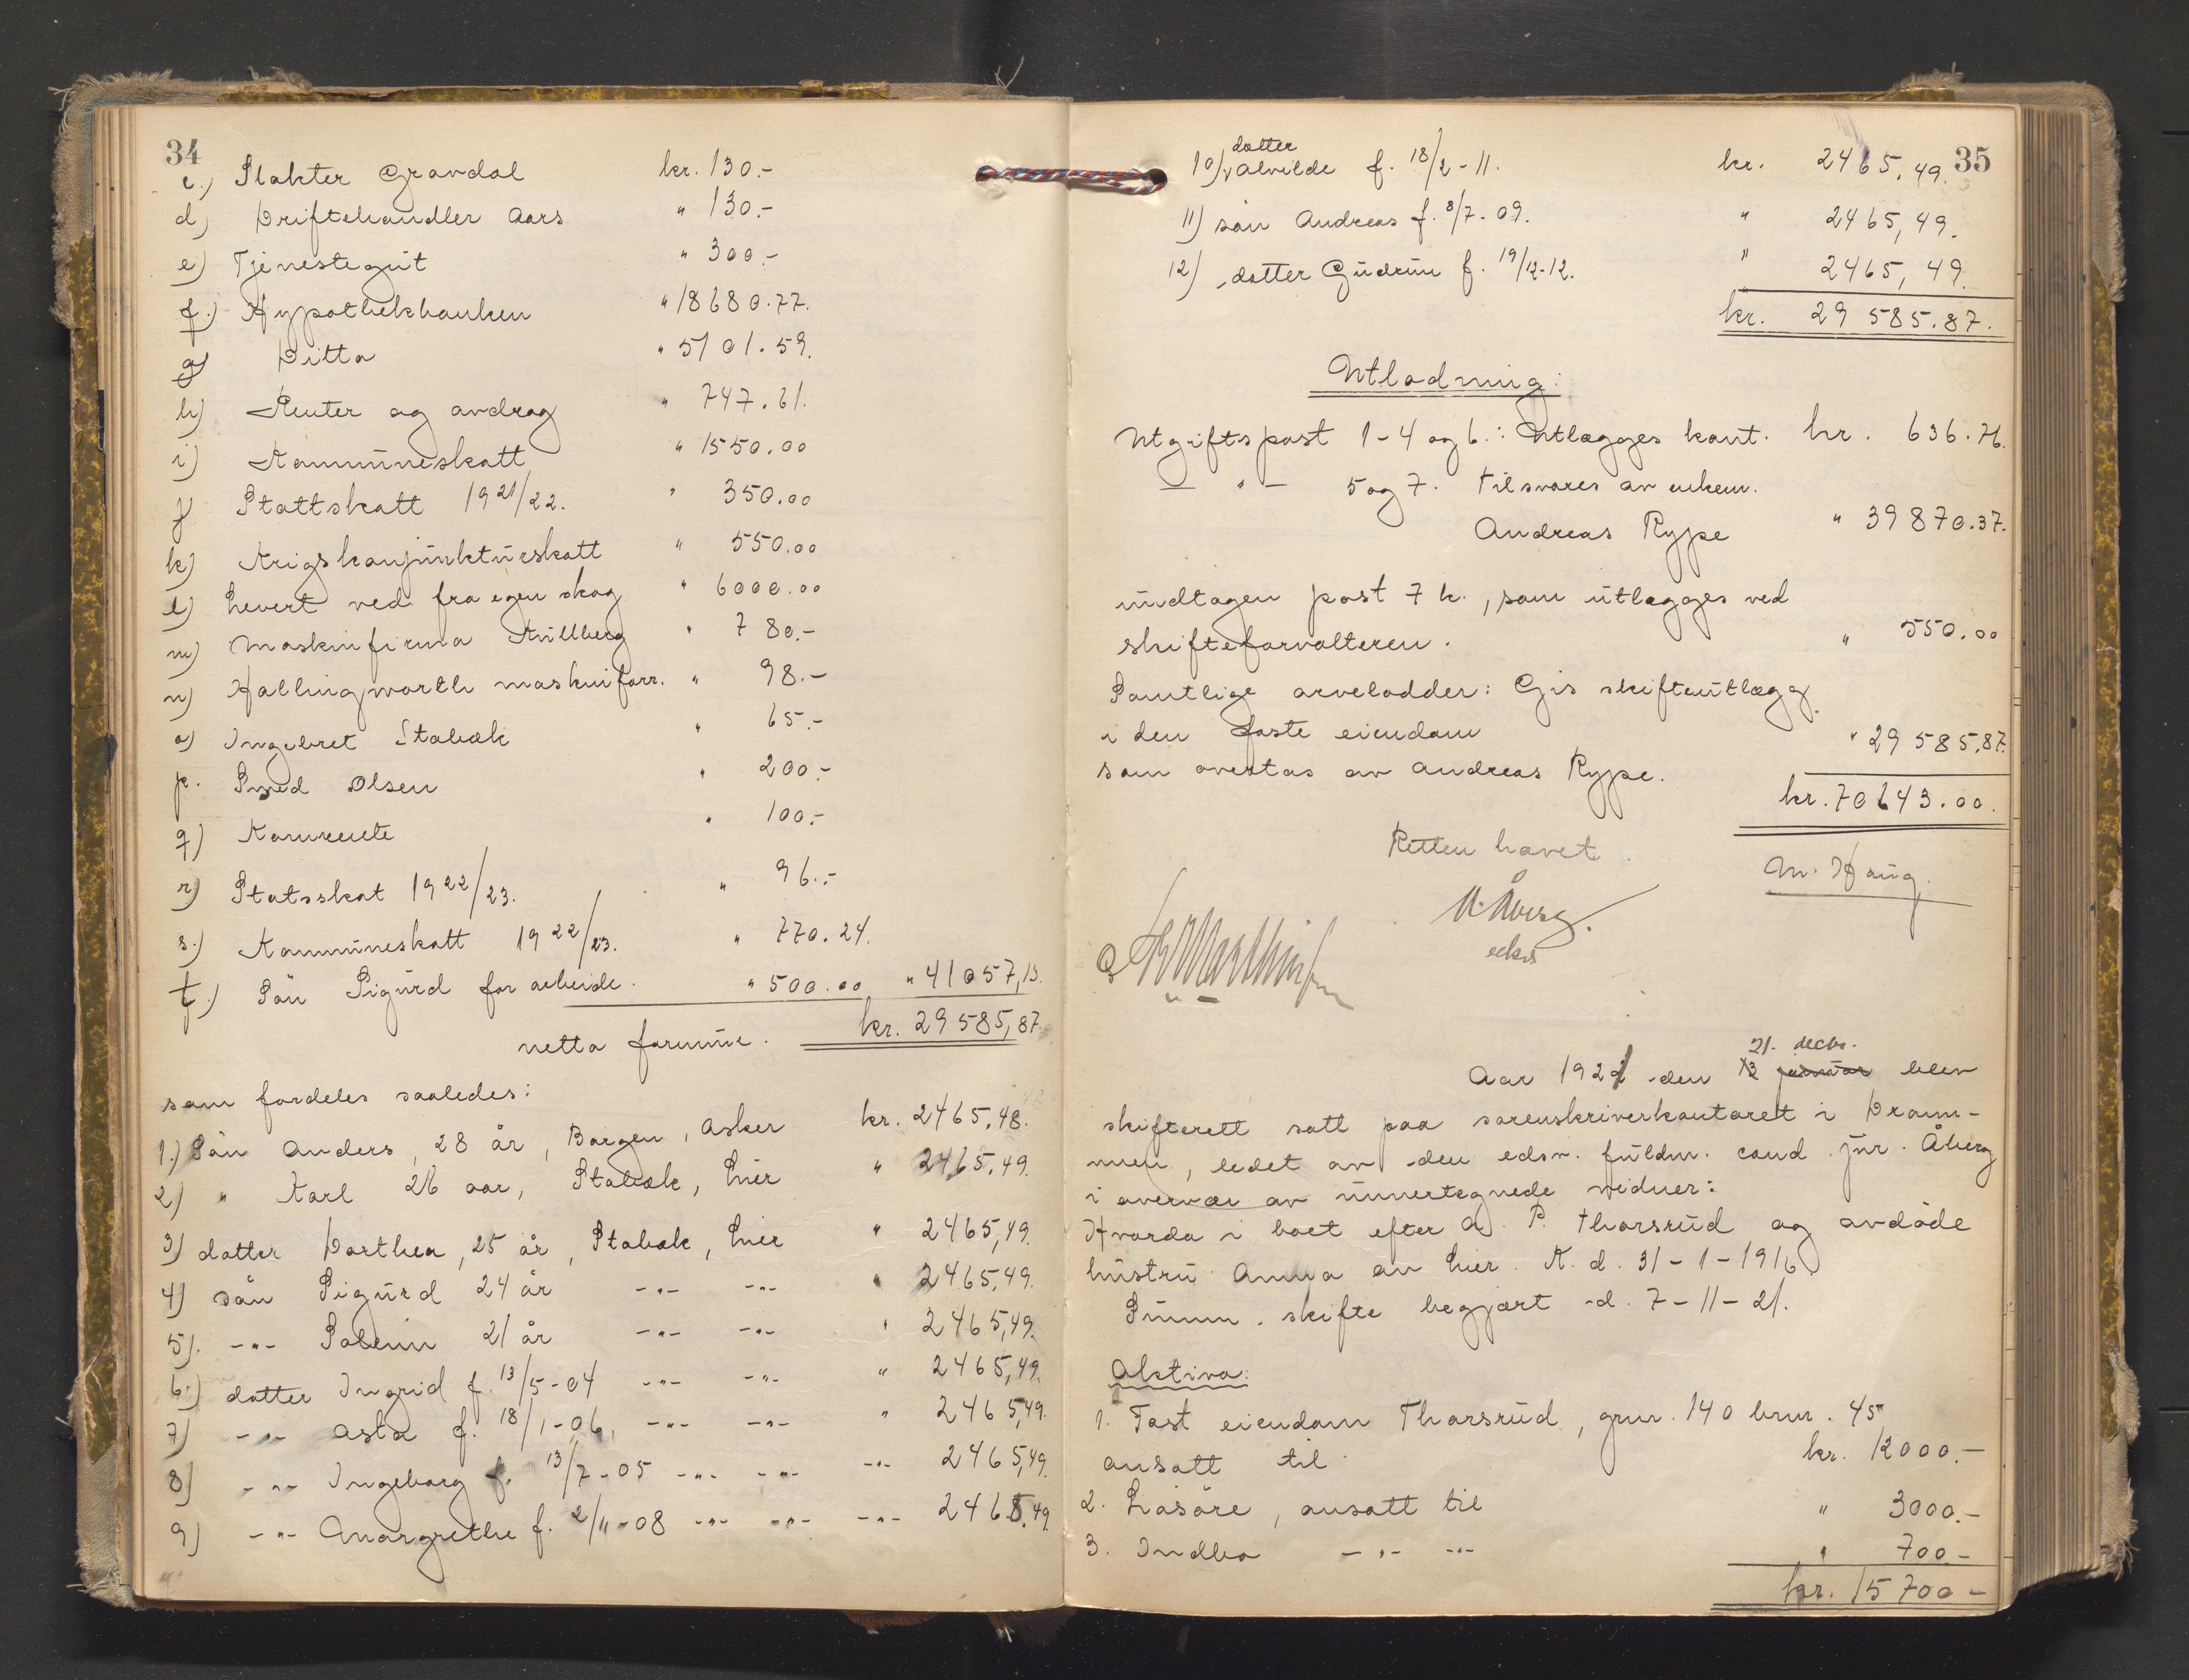 34
c.) Slakter Gravdal kr. 130.-
d) Driftehandler Aars " 130.-
e) Tjenestegut " 300.-
f.) Hypothekbanken " 18680.77.
g) Ditto " 5101.59.
h) Renter og avdrag " 747.61.
i) Kommuneskatt " 1550.00
j) Stattskatt 1921/22. " 350.00
k) Krigskonjunkturskatt " 550.00
l) Levert ved fra egen skog " 6000.00
m) Maskinfirma Kullberg " 780.-
n) Hallingworth maskinforr. " 98.-
o) Ingebret Stabæk " 65.-
p. Smed Olsen " 200.-
q) Kornrente " 100.-
r) Statsskat 1922/23. " 96.-
s.) Kommuneskatt 1922/23. " 770.24.
t.) Sön Sigurd for arbeide. " 500.00 " 41057,13.
netto formue. kr. 29585,87.
som fordeles saaledes:
1.) Sön Anders, 28 år, Borgen, Asker kr. 2465,48.
2) " Karl 26 aar, Stabæk, Lier " 2465,49.
3) datter Dorthea, 25 år, Stabæk, Lier " 2465,49.
4) sön Sigurd 24 år -"- -"- " 2465,49.
5). -"- Severin 21 år -"- -"- " 2465,49.
6.) datter Ingrid f. 13/5-04 -"- -"- " 2465,49.
7) -"- Asta f. 18/1-06, -"- -"- " 2465,49.
8) -"- Ingeborg f. 13/7-05 -"- -"- -"- 2465,49.
9) -"- Margrethe f. 2/11-08 -"- -"- -"- 2465,49.
35
10) datter Alvilde f. 18/2-11. kr. 2465,49.
11) sön Andreas f. 8/7-09. " 2465,49.
12) datter Gudrun f. 19/12-12. " 2465,49.
kr. 29585.87.
Utlodning:
Utgiftspost 1-4 og 6.: Utlægges kont. kr. 636.76.
— " — 5 og 7. tilsvares av enkem.
Andreas Rype " 39870.37.
undtagen post 7 k., som utlægges ved
skifteforvalteren. " 550.00
Samtlige arvelodder: Gis skifteutlægg
i den faste eiendom " 29585,87.
som overtas av Andreas Rype.
kr. 70643.00.
Retten hævet.
M. Haug.
N. Åberg.
Aar 1921 den 13 januar 21. decbr. blev
skifterett satt paa sorenskriverkontorett i Dram-
men, ledet av den edsv. fuldm. cand. jur. Åberg
i overvær av unnertegnede vidner:
Hvorda i boet efter A. P. Thorsrud og avdöde
hustru Anna av Lier. K. d. 31-1-1916.
Summ. skifte begjært d. 7-11-21.
Aktiva:
1. Fast eiendom Thorsrud, gnr. 140 bnr. 45
ansatt til kr. 12000.-
2. Lösöre, ansatt til " 3000.-
3. Indbo -"- -"- " 700-
kr. 15700-